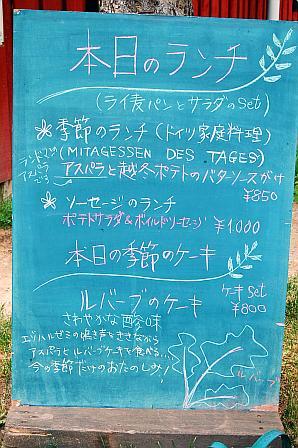 本日のランチ
(ライ麦パンとサラダのSet)
季節のランチ(ドイツ家庭料理)
(MITAGESSEN DES TAGES)
アスパラと越冬ポテトのバターソースがけ
¥850
ソーセージのランチ
ポテトサラダ&ボイルドソーセージ ¥1,000
本日の季節のケーキ
ルバーブのケーキ
ケーキSet
¥800
さわやかな酸味
エゾハルゼミの鳴き声をききながら
アスパラとルバーブケーキを食べる...
今の季節だけのおたのしみ!
ルバーブ